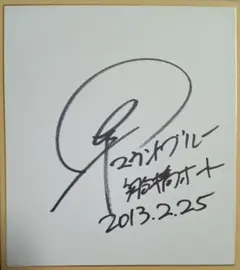 マウントブルー
船橋オート
2013.2.25